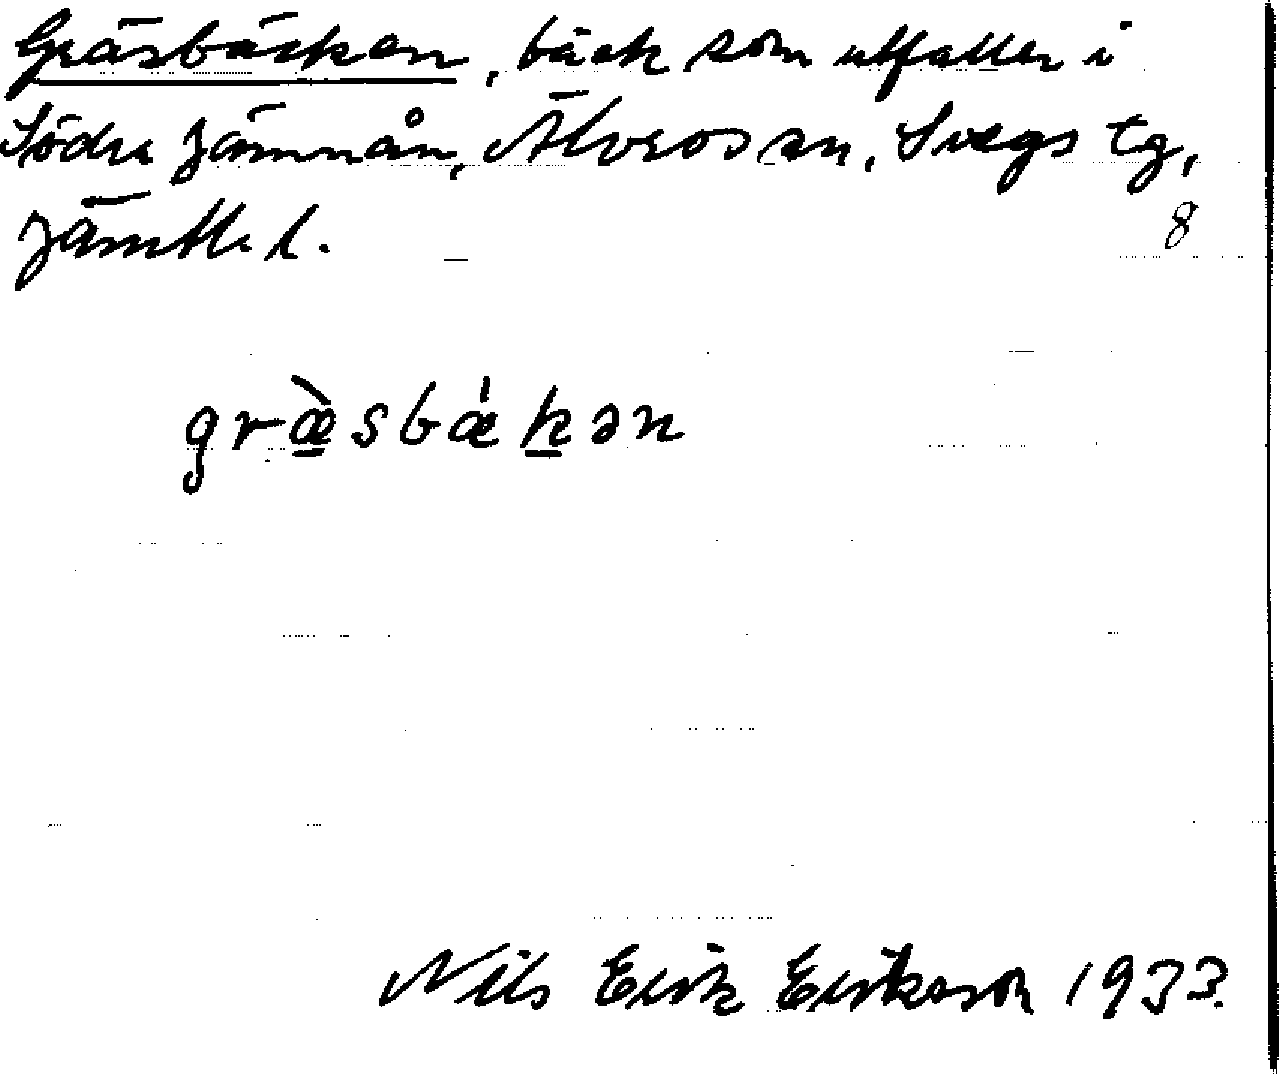 Gräsbäcken, bäck som utfaller i
Södra Jämnån, Älvros sn, Svegs tg,
Jämtl. l.
8
græ̀sbǽkən
Nils Erik Eriksson 1933.